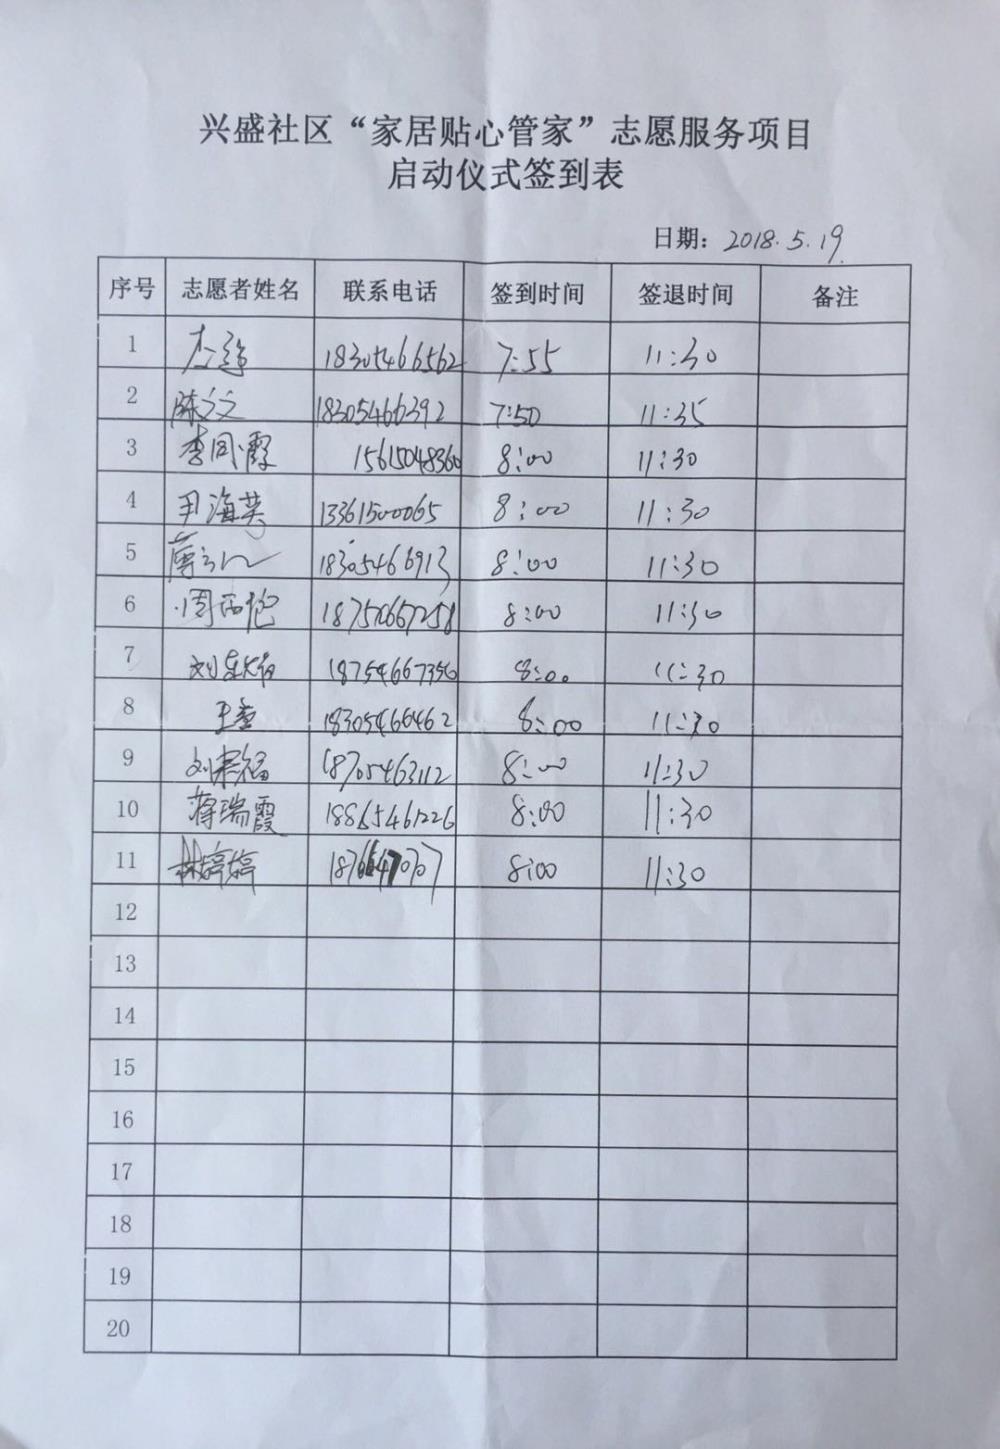 兴盛社区“家居贴心管家”志愿服务项目
启动仪式签到表
日期：2018.5.19.
序号 志愿者姓名 联系电话 签到时间 签退时间 备注
1 18305466562 7:55 11:30
2 陈文文 18305466392 7:50 11:35
3 李同霞 15615048360 8:00 11:30
4 尹海英 13361500065 8:00 11:30
5 18305466913 8:00 11:30
6 周 8:00 11:30
7 刘 18754667356 8:00 11:30
8 王 18305466462 8:00 11:30
9 刘宗福 18705463112 8:00 11:30
10 蒋瑞霞 18865461226 8:00 11:30
11 林婷婷 8:00 11:30
12
13
14
15
16
17
18
19
20